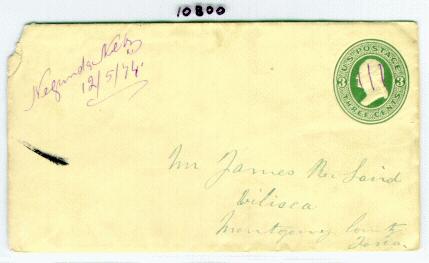 10800
Negunda Neb
12/5/74
U.S. POSTAGE
3 3
THREE CENTS
Mr James
Laird
Vilisca
Montgomery County
Iowa.